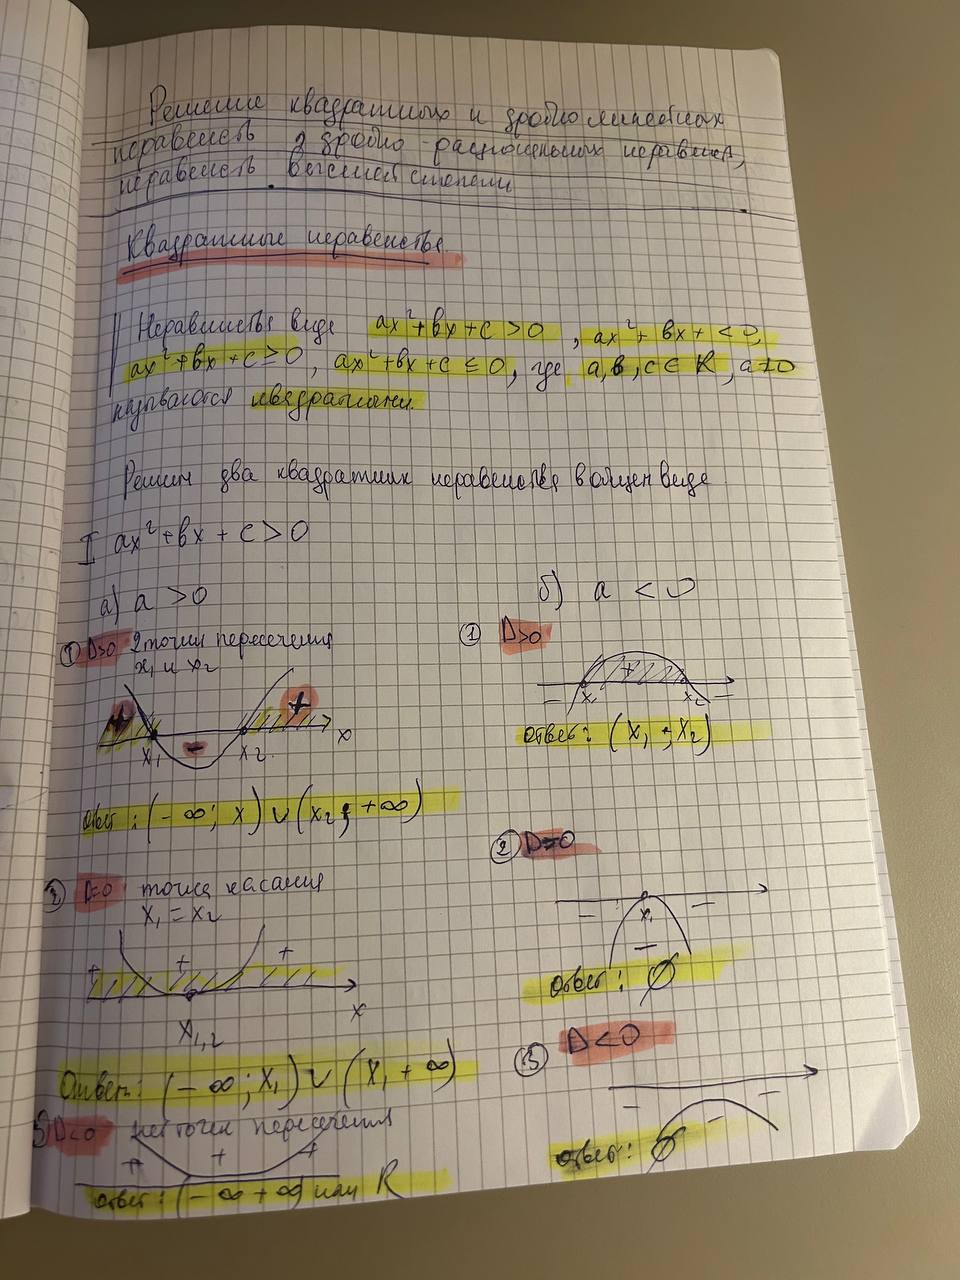 Решение квадратных и дробно линейных
неравенств, дробно-рациональных неравенств,
неравенств высшей степени
Квадратные неравенства.
Неравенства вида ax²+bx+c>0, ax²+bx+<0,
ax²+bx+c≥0, ax²+bx+c≤0, где a,b,c∈R, a≠0
называются квадратными.
Решим два квадратных неравенства в общем виде
I ax²+bx+c>0
а) a>0
① D>0 2 точки пересечения
x₁ и x₂
+ - +
x₁ x₂ x
Ответ: (-∞; x) ∪ (x₂; +∞)
② D=0 точка касания
x₁ = x₂
+ + +
x
x₁,₂
Ответ: (-∞; x₁) ∪ (x₁ +∞)
3) D<0 нет точек пересечения
+ + +
Ответ: (-∞ +∞) или R
б) a < 0
① D>0
+
- x₁ x₂ -
Ответ: (x₁; x₂)
② D=0
- x₁ -
-
Ответ: ∅
③ D<0
- - -
Ответ: ∅